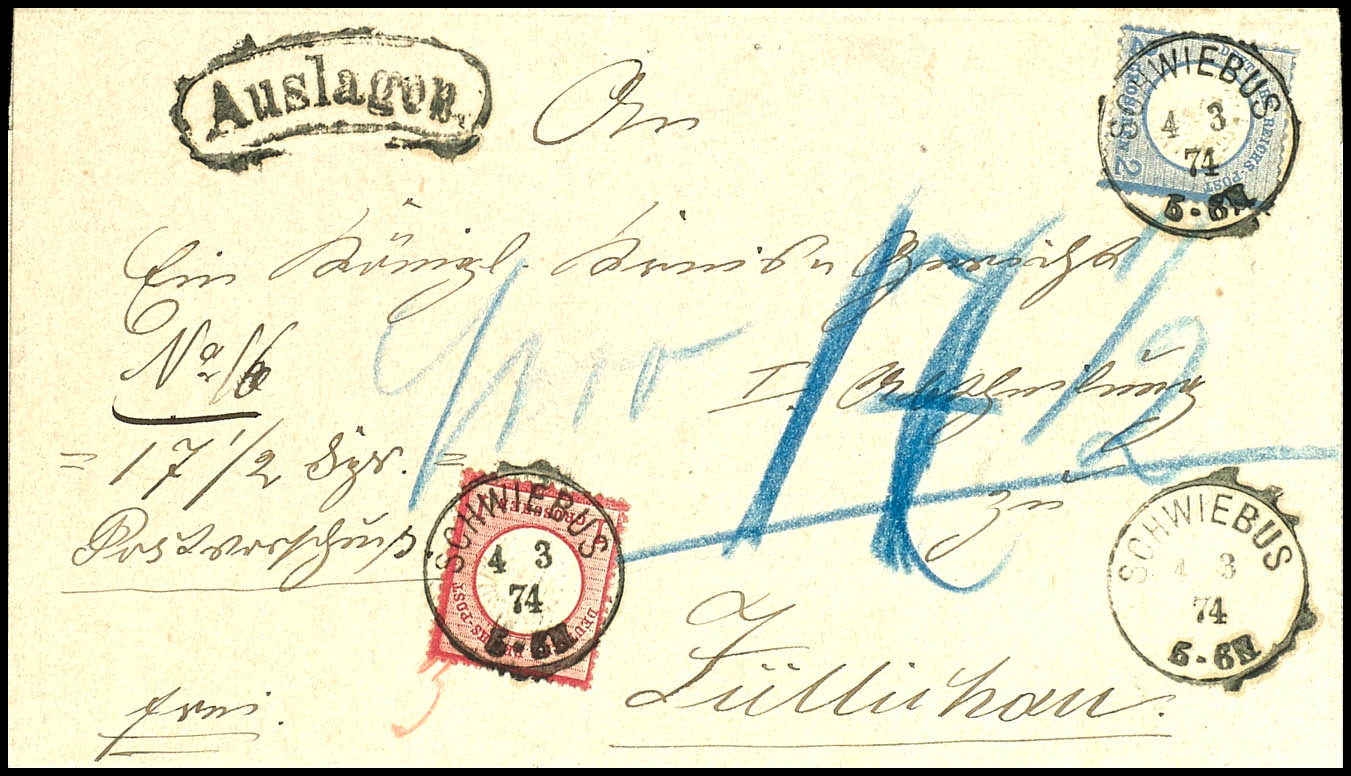 Auslagen.
An
SCHWIEBUS
4 3
74
5-6N
DEUTSCHE REICHS-POST
2 GROSCHEN 2
Ein Königl. Kreis-Gericht
No 16
I. Abtheilung
17 1/2
= 17 1/2 Sgr. =
zu
Postvorschuß
SCHWIEBUS
4 3
74
5-6N
GROSCHEN
DEUTSCHE REICHS-POST
SCHWIEBUS
4 3
74
5-6N
Züllichau.
frei.
3